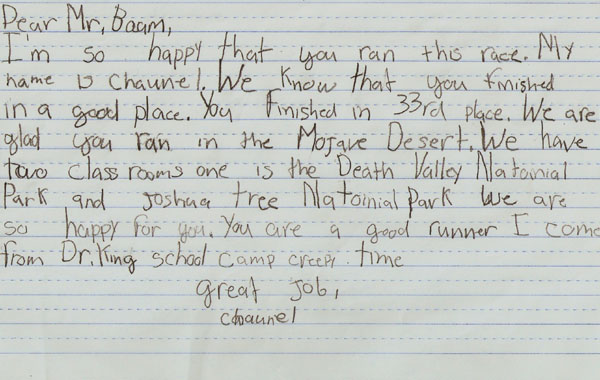 Dear Mr. Baam,
I'm so happy that you ran this race. My
name is Chaunel. We know that you finished
in a good place. You finished in 33rd place. We are
glad you ran in the Mojave Desert. We have
two classrooms one is the Death Valley Natoinial
Park and Joshua tree Natoinial Park We are
so happy for you. You are a good runner I come
from Dr. King school camp creepy time
great Job,
chaunel